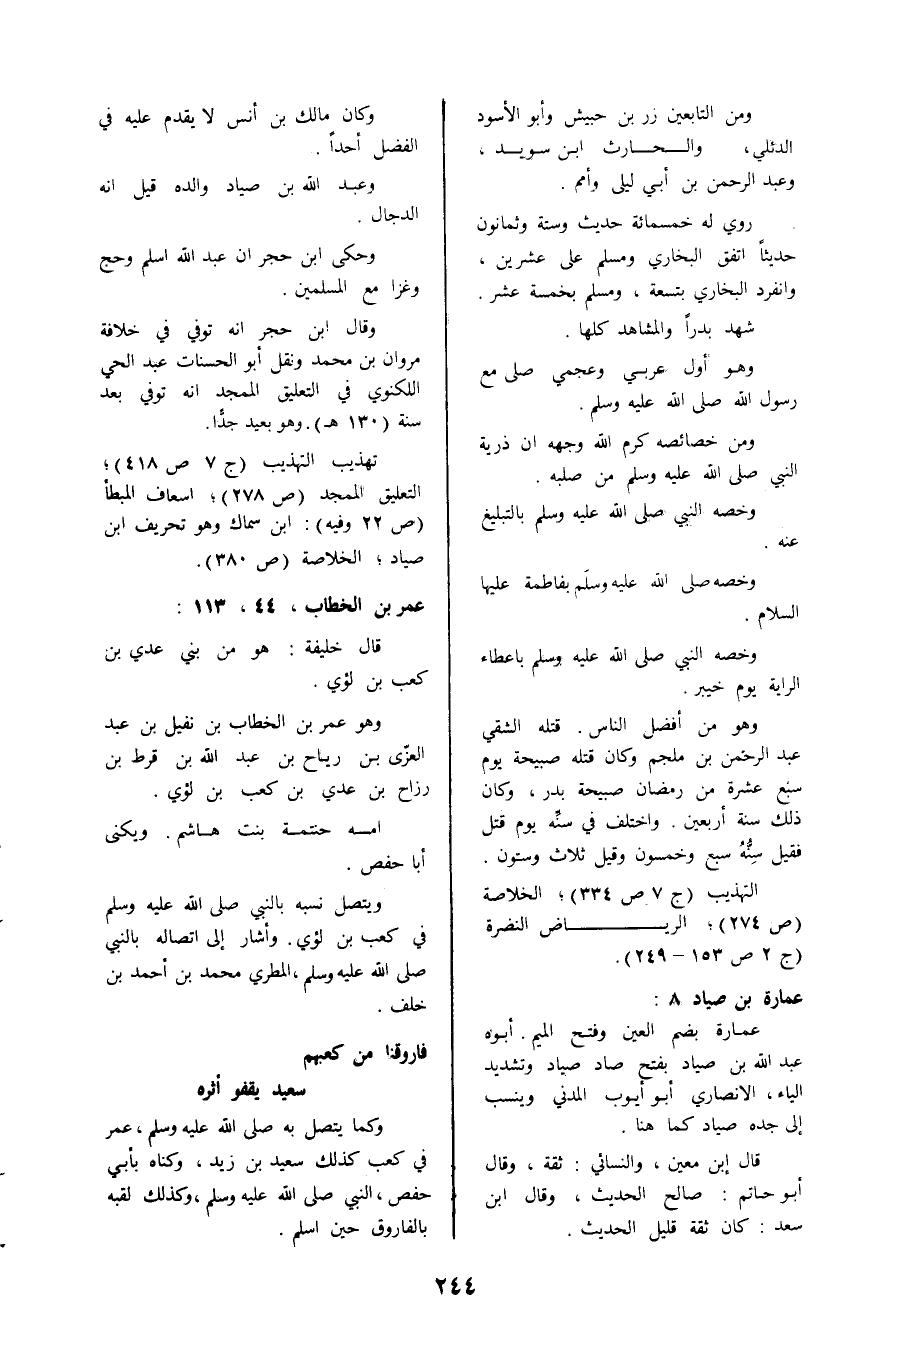 ومن التابعين زر بن حبيش وأبو الأسود
الدئلي، والحارث ابن سويد ،
وعبد الرحمن بن أبي ليلى وأمم .
روي له خمسمائة حديث وستة وثمانون
حديثاً اتفق البخاري ومسلم على عشرين ،
وانفرد البخاري بتسعة ، ومسلم بخمسة عشر .
شهد بدراً والمشاهد كلها .
وهو أول عربي وعجمي صلى مع
رسول الله صلى الله عليه وسلم .
ومن خصائصه كرم الله وجهه ان ذرية
النبي صلى الله عليه وسلم من صلبه .
وخصه النبي صلى الله عليه وسلم بالتبليغ
عنه .
وخصه صلى الله عليه وسلّم بفاطمة عليها
السلام .
وخصه النبي صلى الله عليه وسلم باعطاء
الراية يوم خيبر .
وهو من أفضل الناس . قتله الشقي
عبد الرحمن بن ملجم وكان قتله صبيحة يوم
سبع عشرة من رمضان صبيحة بدر ، وكان
ذلك سنة أربعين . واختلف في سنّه يوم قتل
فقيل سِنُّهُ سبع وخمسون وقيل ثلاث وستون .
التهذيب (ج ٧ ص ٣٣٤)؛ الخلاصة
(ص ٢٧٤)؛ الرياض النضرة
(ج ٢ ص ١٥٣ – ٢٤٩).
عمارة بن صياد ٨ :
عمارة بضم العين وفتح الميم . أبوه
عبد الله بن صياد بفتح صاد صياد وتشديد
الياء ، الانصاري أبو أيوب المدني وينسب
إلى جده صياد كما هنا .
قال إبن معين ، والنسائي : ثقة ، وقال
أبو حاتم : صالح الحديث ، وقال ابن
سعد : كان ثقة قليل الحديث .
وكان مالك بن أنس لا يقدم عليه في
الفضل أحداً .
وعبد الله بن صياد والده قيل انه
الدجال .
وحكى ابن حجر ان عبد الله اسلم وحج
وغزا مع المسلمين .
وقال ابن حجر انه توفي في خلافة
مروان بن محمد ونقل أبو الحسنات عبد الحي
اللكنوي في التعليق الممجد انه توفي بعد
سنة (١٣٠ هـ). وهو بعيد جدًّا.
تهذيب التهذيب (ج ٧ ص ٤١٨)؛
التعليق الممجد (ص ٢٧٨)؛ اسعاف المبطأ
(ص ٢٢ وفيه): ابن سماك وهو تحريف ابن
صياد ؛ الخلاصة (ص ٣٨٠).
عمر بن الخطاب ، ٤٤ ، ١١٣ :
قال خليفة : هو من بني عدي بن
كعب بن لؤي .
وهو عمر بن الخطاب بن نفيل بن عبد
العزّى بن رياح بن عبد الله بن قرط بن
رزاح بن عدي بن كعب بن لؤي .
امه حنتمة بنت هاشم . ويكنى
أبا حفص .
ويتصل نسبه بالنبي صلى الله عليه وسلم
في كعب بن لؤي . وأشار إلى اتصاله بالنبي
صلى الله عليه وسلم ، المطري محمد بن أحمد بن
خلف .
فاروقنا من كعبهم
سعيد يقفو أثره
وكما يتصل به صلى الله عليه وسلم ، عمر
في كعب كذلك سعيد بن زيد ، وكناه بأبي
حفص ، النبي صلى الله عليه وسلم ، وكذلك لقبه
بالفاروق حين اسلم .
٢٤٤